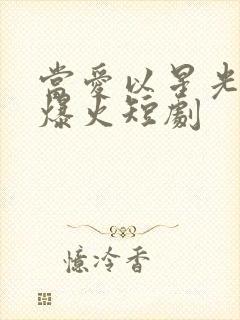 當愛以星光
爆火短劇
憶冷香